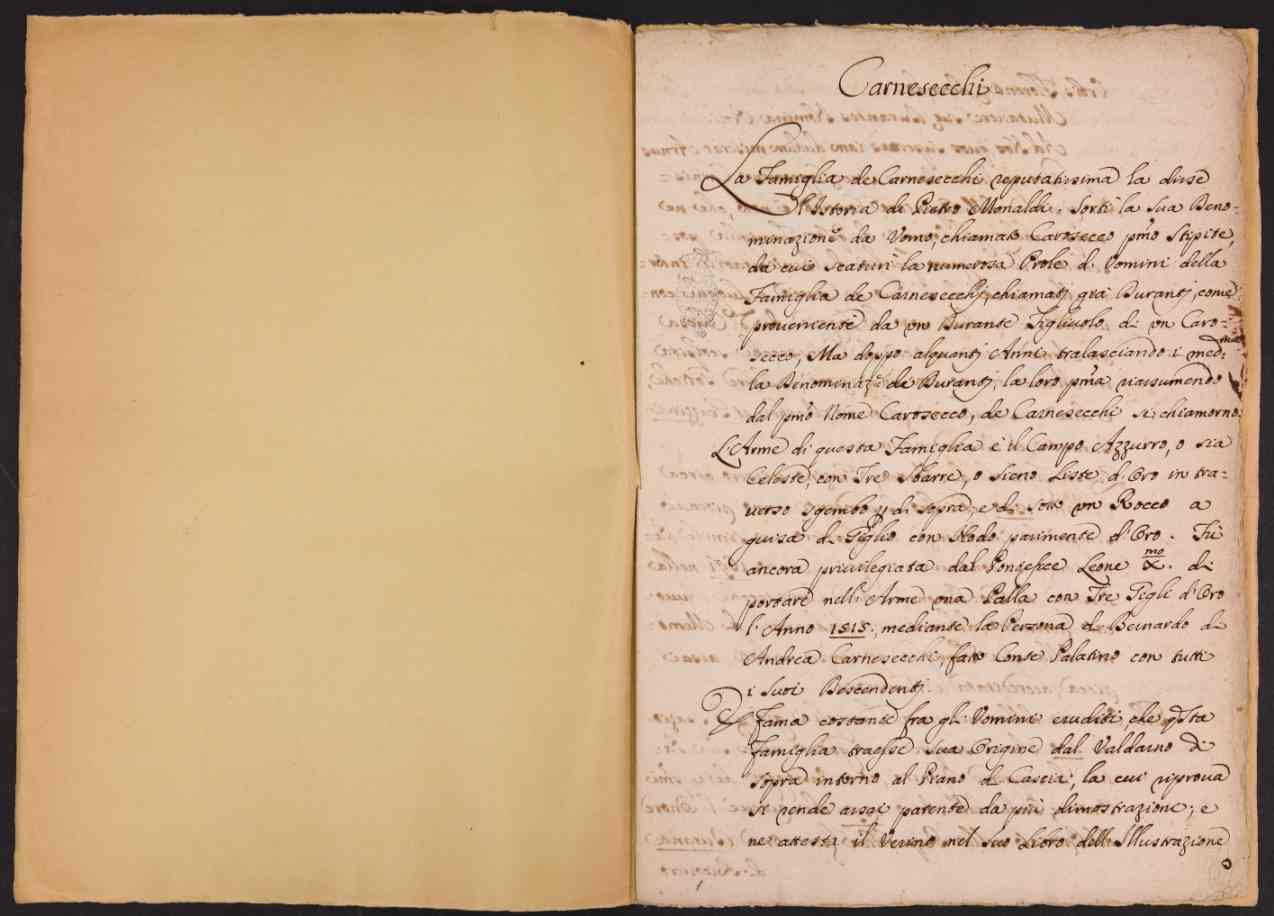 Carnesecchi
La Famiglia de Carnesecchi reputatissima la disse
l'Istoria di Pietro Monaldi. Sortì la sua Deno-
minazione da Uomo, chiamato Carosecco pmo Stipite,
da cui scaturì la numerosa Prole di Uomini della
Famiglia de Carnesecchj, chiamatj già Durantj, come
proveniente da un Durante Figliuolo di un Caro-
secco, Ma doppo alquantj Anni tralasciando i med:mi
la Denominaz:e de Durantj, la loro pma riassumendo
dal pmo Nome Carosecco, de Carnesecchi si chiamorno.
L'Arme di questa Famiglia è il Campo Azzurro, o sia
Celeste, con Tre Sbarre, o sieno Liste d'Oro in tra-
verso sgembo di sopra, e di sotto un Rocco a
guisa di Giglio con Nodo parimente d'Oro. Fù
ancora privilegiata dal Pontefice Leone X.mo di
portare nell'Arme una Palla con Tre Gigli d'Oro
l'Anno 1515., mediante la Persona di Bernardo di
Andrea Carnesecchi, fatto Conte Palatino con tutti
i suoi Descendentj.
È fama costante fra gli Uomini eruditi, che qsta
Famiglia traesse sua Origine dal Valdarno di
sopra intorno al Piano di Cascia, la cui riprova
si rende assai patente da più dimostrazione, e
ne attesta il Verino nel suo Libro dell'Illustrazione